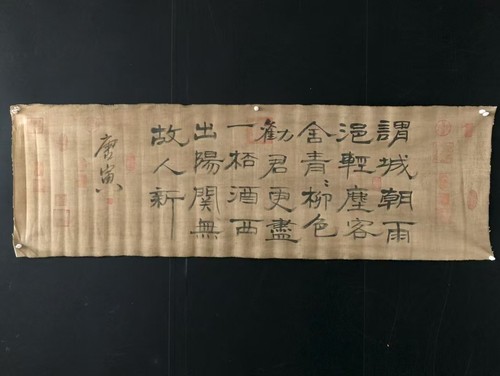 謂城朝雨
浥輕塵客
舍青〻柳色
勸君更盡
一桮酒西
出陽関無
故人新
唐寅